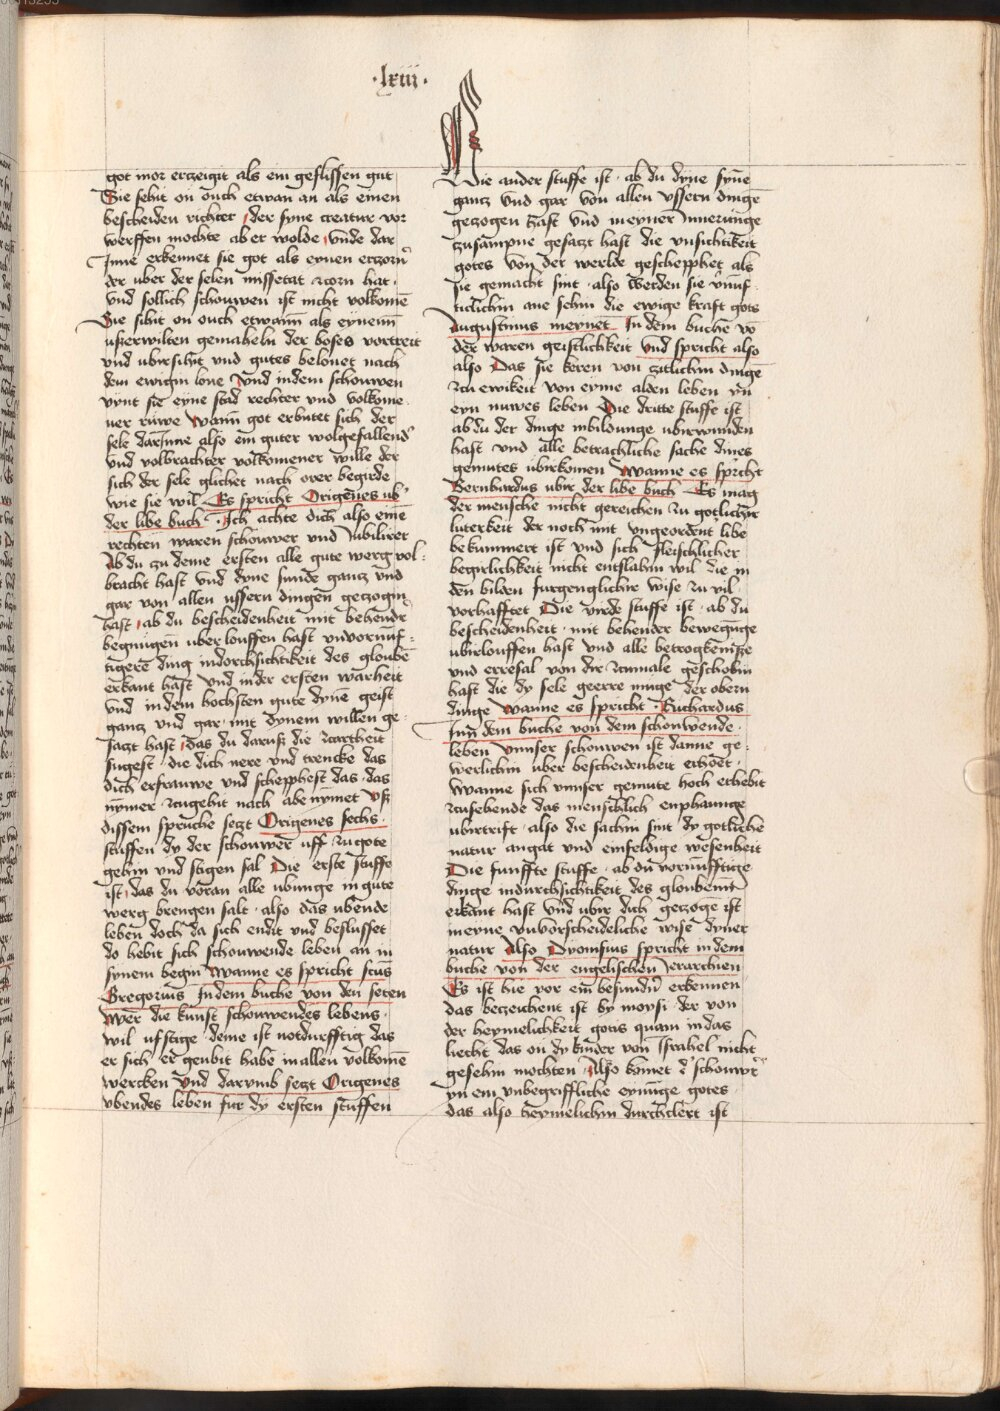 ·lxiii·
got mor erczeigit als ein geflissen gut
Sie sehit on ouch etwan an als einen
bescheiden richter der syne creatur vor
werffen mochte ab er wolde vnde dar
Inne erkennet sie got als eynen erczorn
der uber der selen missetat zcorn hat ·
vnd sollich schouwen ist nicht volkomē
Sie sihit on ouch etwann als eynenn
usserwilten gemaheln der boses vortreit
vnd ubirsihit vnd gutes belonet nach
dem ewigin lone Vnd indem schouwen
vynt sie eyne stad rechter vnd volkome
ner ruwe Wann got erbutet sich der
sele darinne also ein guter wolgefallend
vnd volbrachter volkomener wille der
sich der sele glichet nach orer begirde
wie sie wil Es spricht Origenes ub
der libe buch · Ich achte dich also eine
rechten waren schouwer vnd Iubilirer
Ab du zu deme ersten alle gute werg vol
bracht hast vnd dyne sunde gancz vnd
gar von allen ussern dingen geczogin
hast ab du bescheidenheit mit behendr
begnugen uberlouffen hast vnvornuf
tigere ding indorchsichtikeit des gloubē
erkant hast vnd inder ersten warheit
vnd indem hochsten gute dynē geist
gancz vnd gar mit dynem willen ge
saczt hast das du daruß die zcartheit
sugest · die dich nere vnd trencke das
dich erfrauwe vnd schepphest das · das
nymer zcugehit nach abe nymet Vß
dissem spruche seczt Origenes sechs
stuffen dy der schouwer uff zu gote
gehin vnd stigen sal Die erste stuffe
ist das du voran alle ubunge in gute
werg brengen salt · also das ubende
leben doch da sich endit vnd beslusset
do hebit sich schouwende leben an in
synem begin Wanne es spricht scus
Gregorius Indem buche von den seten
Wer die kunst schouwendes lebens ·
wil ufstige · deme ist notdurfftig das
er sich er geubit habe in allen volkomē
wercken Vnd darumb seczt Origenes
vbendes leben fur dy ersten stuffen
Die ander stuffe ist · ab du dyne synē
gancz vnd gar von allen ussern dingē
geczogen hast vnd in eyner Innerunge
zusampne gesaczt hast die vnsichtikeit
gotes von der werlde geschepphet als
sie gemacht sint · also werden sie vnuf
ticlichin ane sehin die ewige kraft gots
Augustinus meynet In dem buche vō
der waren geistlichkeit vnd spricht also
also Das sie keren von zitlichin dinge
zcu ewikeit von eyme alden leben yn
eyn nuwes leben Die dritte stuffe ist
ab du der dinge inbildunge ubirwunden
hast vnd alle betrachliche sache dines
gemutes ubirkomen Wanne es spricht
Bernhardus ubir der libe buch Es mag
der mensche nicht gereichen zu gotlichir
luterkeit der noch mit vngeordent libe
bekummert ist vnd sich fleischlicher
begirlichkeit nicht entslahin wil die in
den bilden furgenglichir wise zu vil
vorhafftet Die virde stuffe ist · ab du
bescheidenheit · mit behender bewegūge
ubirlouffen hast vnd alle betrogkenisse
vnd erresal von dir zcumale geschobin
hast die dy sele geerre muge der obern
dinge Wanne es spricht · Richardus
Inn dem buche von dem schouwende ·
leben Vnnser schouwen ist danne ge
werlichin uber bescheidenheit erhoet ·
Wanne sich vnnser gemute hoch erhebit
zcusehende das menschlich enphaunge
ubirtrift · also die sachin sint dy gotliche
natur angat vnd einfeldige wesenheit
Die funffte stuffe · ab du vornunfftige
dinge indurchsichtikeit des gloubenn
erkant hast vnd ubir dich geczogē ist
in eyne vnvorscheideliche wise dyner
natur Also Dyonisius spricht in dem
buche von der engelischen Ierarchien
Es ist hie vor ein besundn erkennen
das beczeichent ist by moysi · der von
der heymelichkeit gotis quam in das
liecht das on dy kinder von Israhel nicht
gesehin mochten Also komet d schouwer
yn ein vnbegriffliche eynūge gotes ·
das also heymelichin durchclert ist